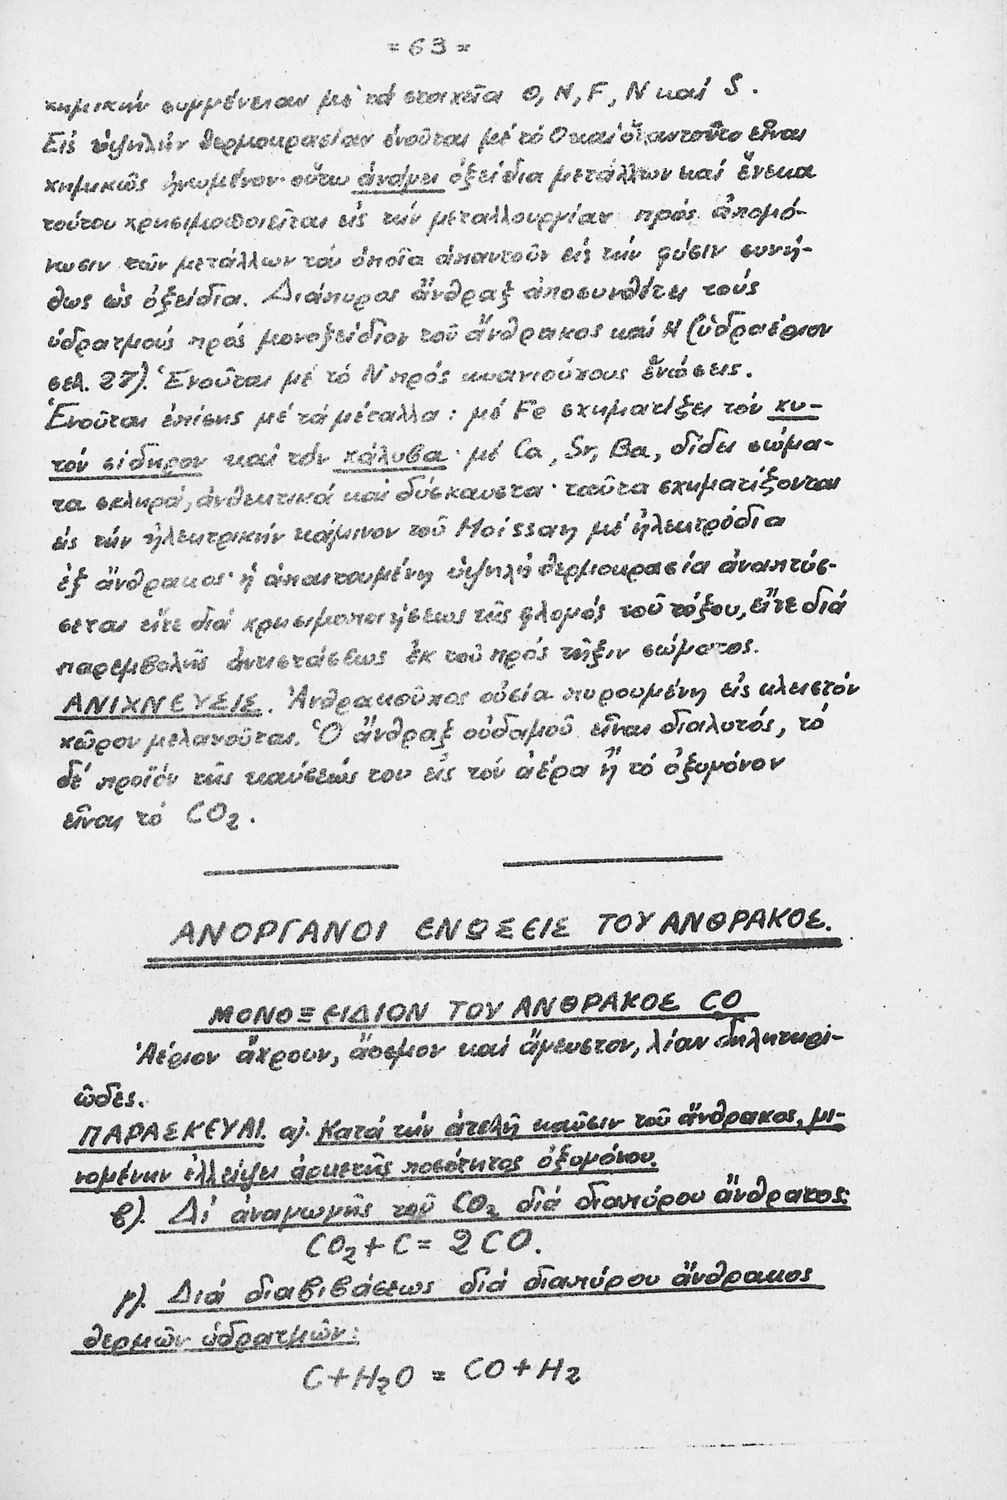 = 63 =
χημικήν συγγένειαν μέ τά στοιχεῖα O, H, F, N καί S.
Εἰς ὑψηλήν θερμοκρασίαν ἑνοῦται μέ τό O καί ὅταν τοῦτο εἶναι
χημικῶς ἡνωμένον· οὕτω ἀνάγει ὀξείδια μετάλλων καί ἕνεκα
τούτου χρησιμοποιεῖται εἰς τήν μεταλλουργίαν πρός ἀπομό-
νωσιν τῶν μετάλλων τά ὁποῖα ἀπαντοῦν εἰς τήν φύσιν συνή-
θως ὡς ὀξείδια. Διάπυρος ἄνθραξ ἀποσυνθέτει τούς
ὑδρατμούς πρός μονοξείδιον τοῦ ἄνθρακος καί H (ὑδραέριον
σελ. 27). Ἑνοῦται μέ τό N πρός κυανιούχους ἑνώσεις.
Ἑνοῦται ἐπίσης μέ τά μέταλλα: μέ Fe σχηματίζει τόν χυ-
τόν σίδηρον καί τόν χάλυβα· μέ Ca, Sr, Ba, δίδει σώμα-
τα σκληρά, ἀνθεκτικά καί δύσκαυστα· ταῦτα σχηματίζονται
εἰς τήν ἠλεκτρικήν κάμινον τοῦ Moissan μέ ἠλεκτρόδια
ἐξ ἄνθρακος· ἡ ἀπαιτουμένη ὑψηλή θερμοκρασία ἀναπτύσ-
σεται εἴτε διά χρησιμοποιήσεως τῆς φλογός τοῦ τόξου, εἴτε διά
παρεμβολῆς ἀντιστάσεως ἐκ τοῦ πρός τῆξιν σώματος.
ΑΝΙΧΝΕΥΣΙΣ. Ἀνθρακοῦχος οὐσία πυρουμένη εἰς κλειστόν
χῶρον μελανοῦται. Ὁ ἄνθραξ οὐδαμοῦ εἶναι διαλυτός, τό
δέ προϊόν τῆς καύσεώς του εἰς τόν ἀέρα ἤ τό ὀξυγόνον
εἶναι τό CO₂.
ΑΝΟΡΓΑΝΟΙ ΕΝΩΣΕΙΣ ΤΟΥ ΑΝΘΡΑΚΟΣ.
ΜΟΝΟΞΕΙΔΙΟΝ ΤΟΥ ΑΝΘΡΑΚΟΣ CO
Ἀέριον ἄχρουν, ἄοσμον καί ἄγευστον, λίαν δηλητηρι-
ῶδες.
ΠΑΡΑΣΚΕΥΑΙ. α). Κατά τήν ἀτελῆ καῦσιν τοῦ ἄνθρακος, γι-
νομένην ἐλλείψει ἀρκετῆς ποσότητος ὀξυγόνου.
β). Δι' ἀναγωγῆς τοῦ CO₂ διά διαπύρου ἄνθρακος:
CO₂ + C = 2 CO.
γ). Διά διαβιβάσεως διά διαπύρου ἄνθρακος
θερμῶν ὑδρατμῶν:
C + H₂O = CO + H₂